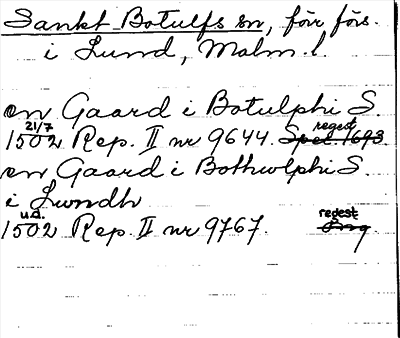 Sankt Botulfs sn, förr förs.
i Lund, Malm. l.
en Gaard i Botulphi S.
21/7 regest
1502 Rep. II nr 9644. Spec. 1693.
en Gaard i Bothwlphi S.
i Lwndh
u.d. regest
1502 Rep. II nr 9767. Orig